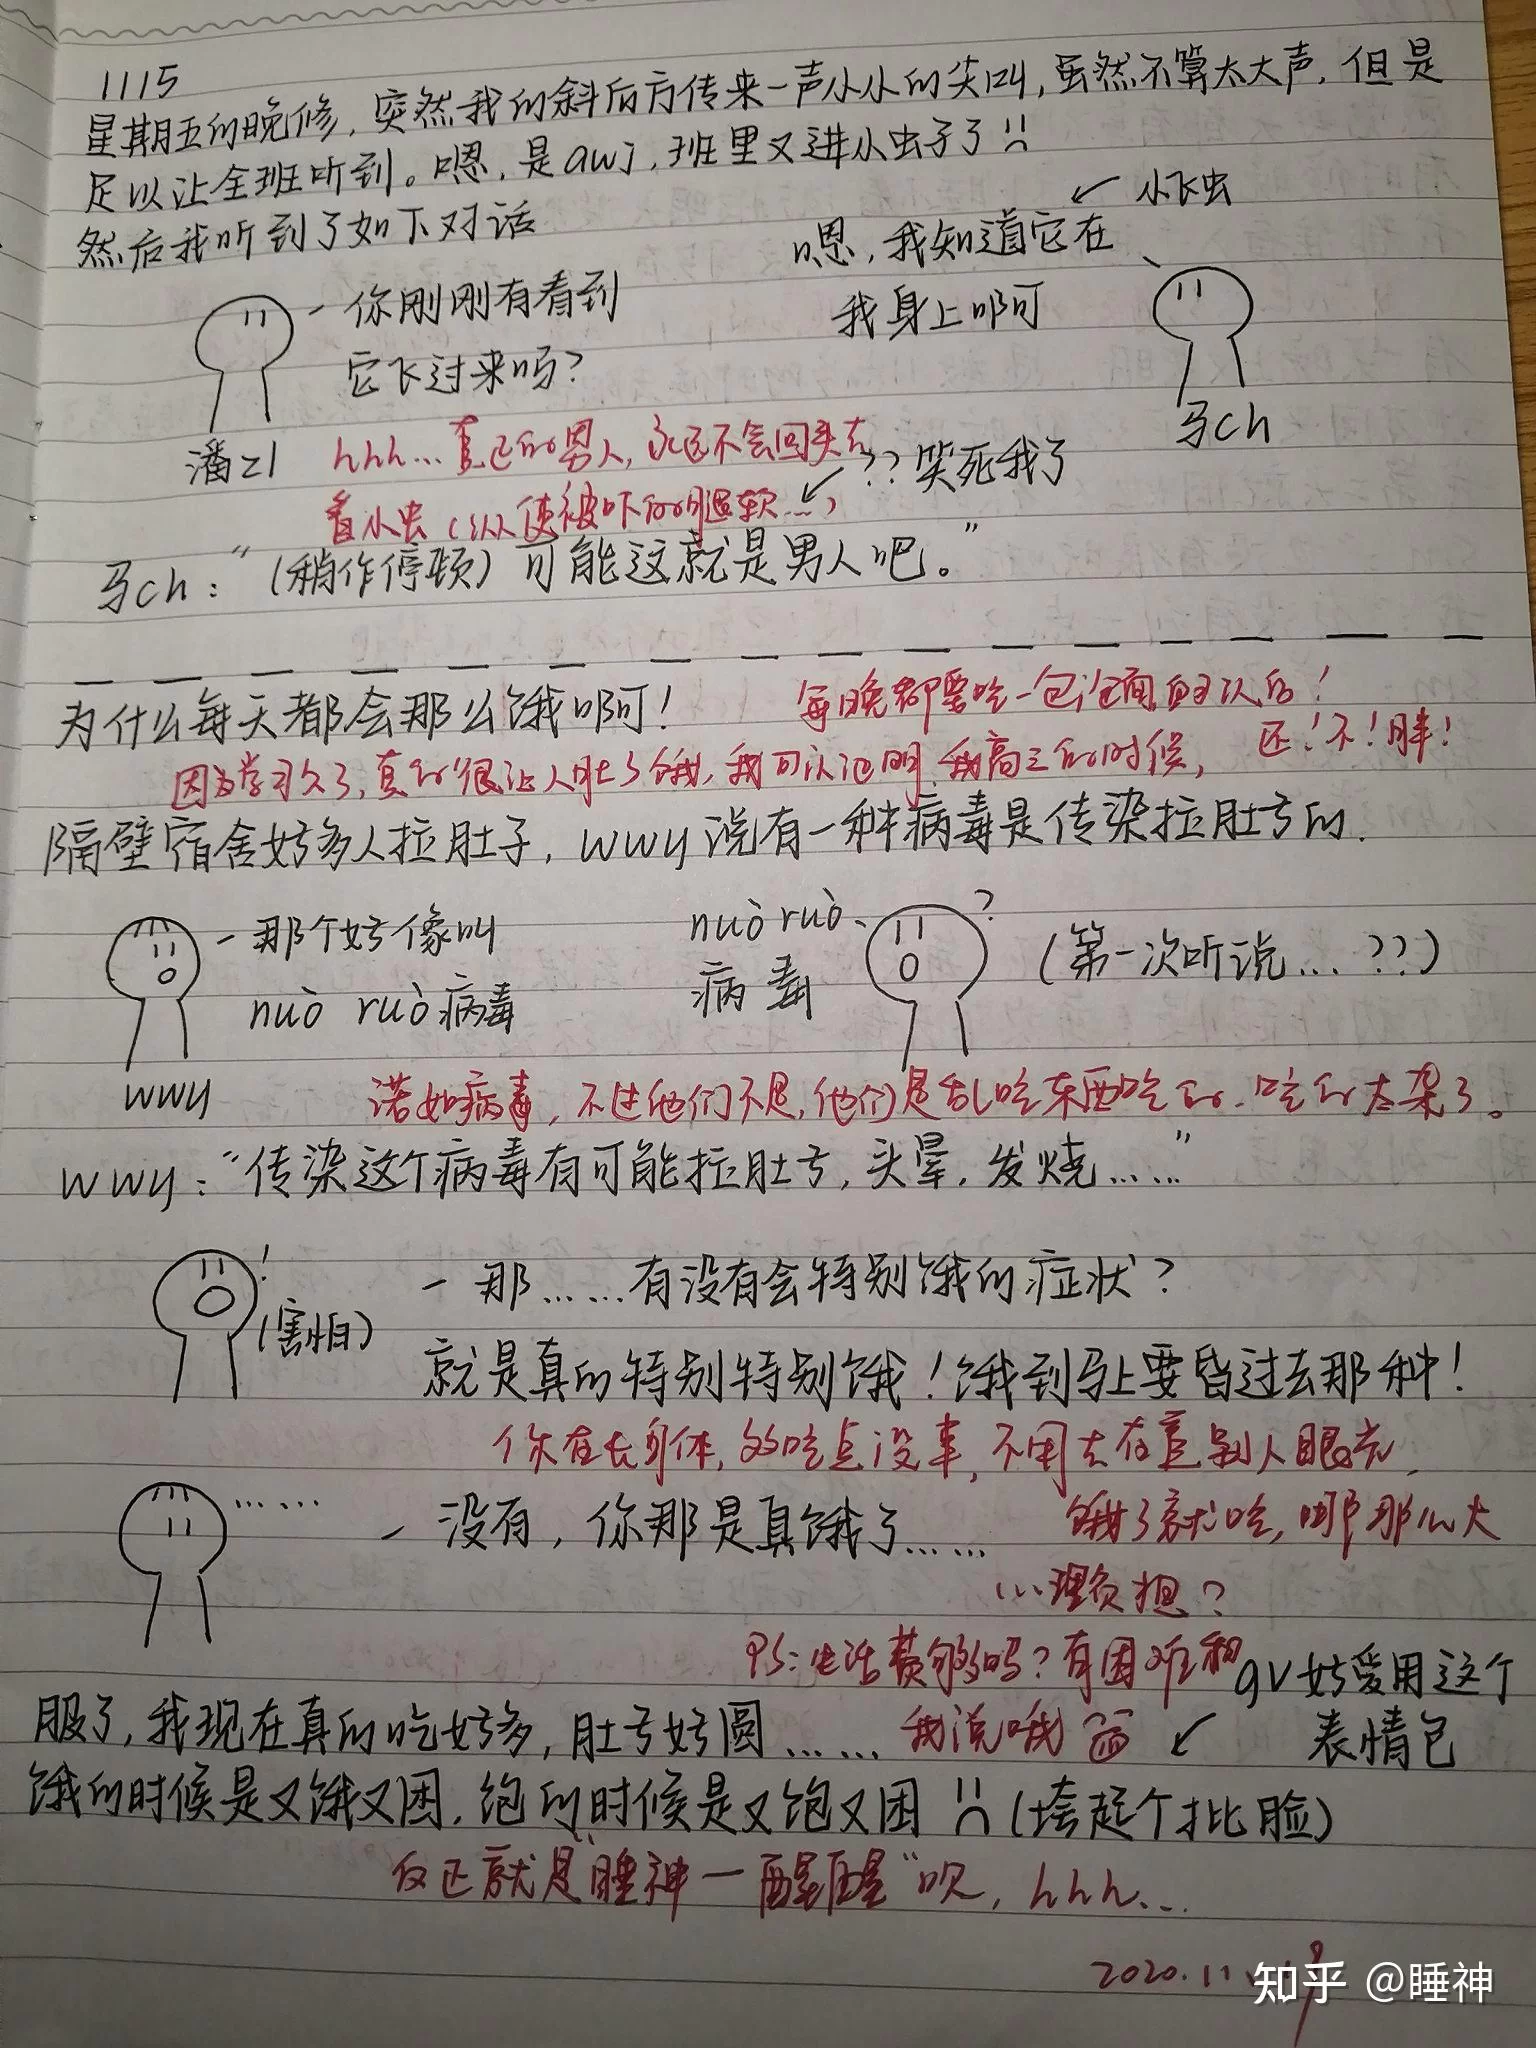 1115
星期五的晚修，突然我的斜后方传来一声小小的尖叫，虽然不算太大声，但是
足以让全班听到。嗯，是awj，班里又进小虫子了
然后我听到了如下对话
小飞虫
你刚刚有看到
它飞过来吗？
嗯，我知道它在
我身上啊
潘zl
马ch
hhh…真正的男人，永远不会回头去
看小虫（以使被吓的腿软…）
？？笑死我了
马ch：“（稍作停顿）可能这就是男人吧。”
为什么每天都会那么饿啊！
每晚都要吃一包泡面自习以后！
还！不！胖！
因为学习久了，真的很让人肚子饿，我可以证明，我高三的时候，
隔壁宿舍好多人拉肚子，wwy说有一种病毒是传染拉肚子的.
那个好像叫
nuò ruò病毒
nuò ruò
病毒
？
（第一次听说…？？）
wwy
诺如病毒，不过他们不是，他们是乱吃东西吃的，吃的太杂了。
wwy：“传染这个病毒有可能拉肚子，头晕，发烧……”
！
（害怕）
－那……有没有会特别饿的症状？
就是真的特别特别饿！饿到马上要昏过去那种！
你在长身体，多吃点没事，不用去在意别人眼光，
……
－没有，你那是真饿了……
饿了就吃，哪那么大
心理负担？
PS：生活费够吗？有困难和
我说哦
gv好爱用这个
表情包
服了，我现在真的吃好多，肚子好圆……
饿的时候是又饿又困，饱的时候是又饱又困（垮起个批脸）
反正就是“睡神一醒醒”呗，hhh…
2020.11
知乎 @睡神